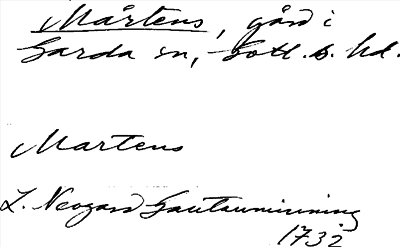 Mårtens, gård i
Garda sn, Gotl. s. hd.
Martens
L. Neogard Gautauminning
1732